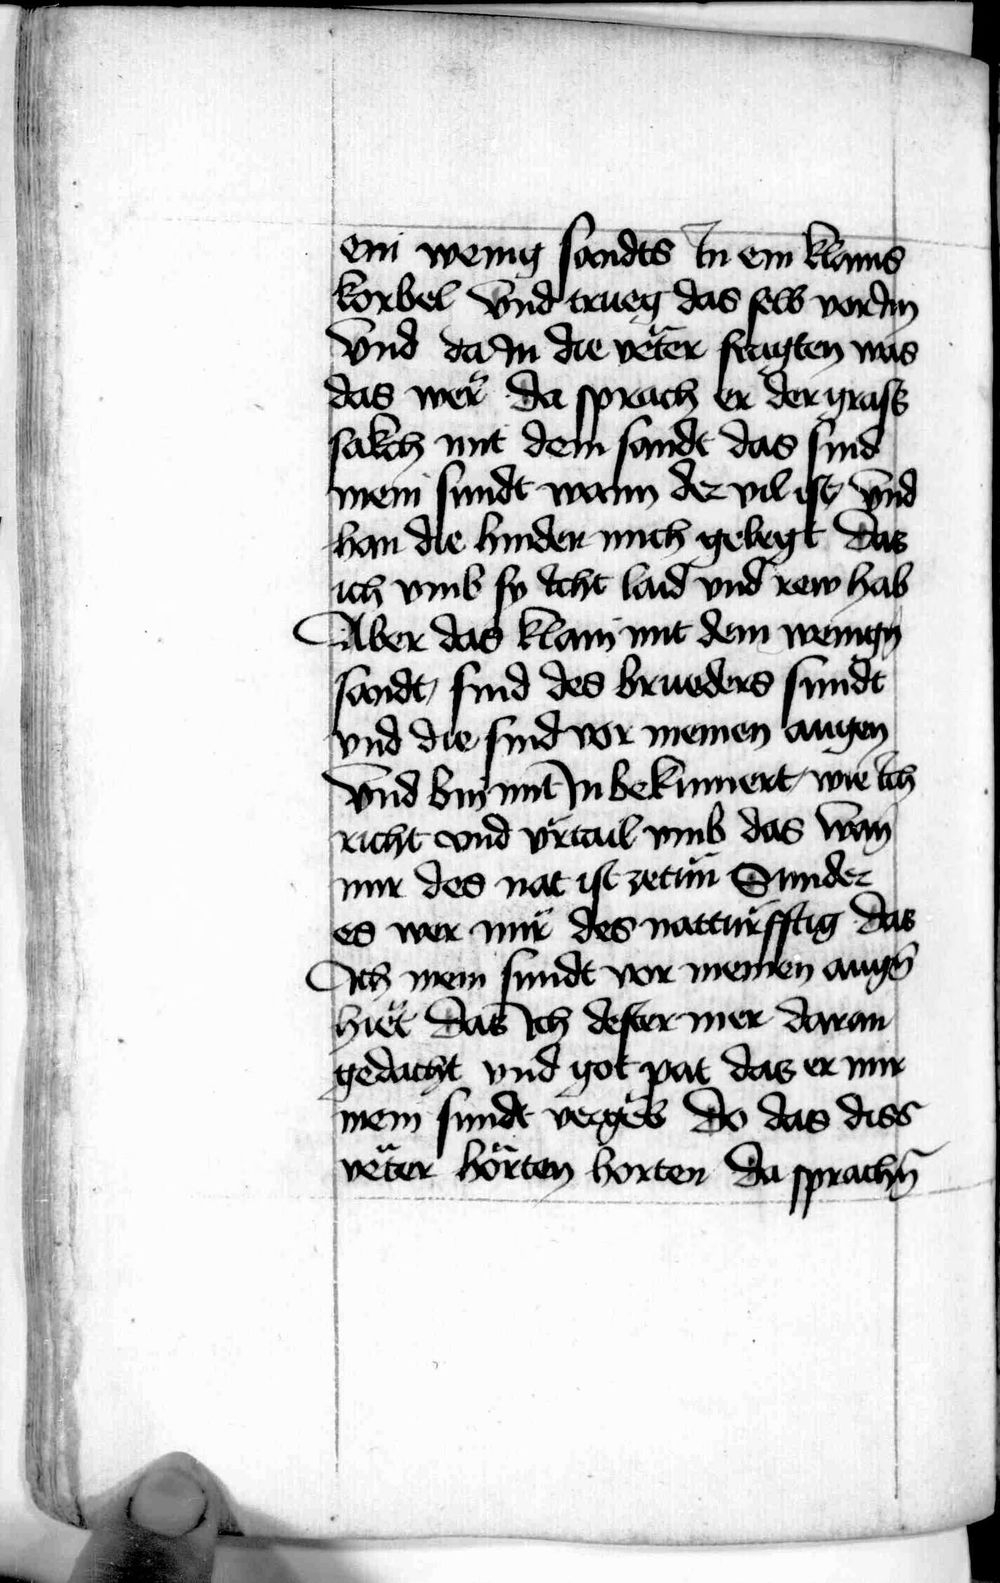 ein wenig sandts In ein klains
korbel Vnd trueg das selb vor Im
Vnd da In die veter fragten was
das wer da sprach er der gross
sakch mit dem sandt das sind
mein sundt wann der vil ist Vnd
han die hinder mich gelegt Das
ich vmb sy icht laid vnd rew hab
Aber das klain mit dem wenign
sandt / sind des brueders sundt
vnd die sind vor meinen augen
Vnd bin mit In bekumert / wie ich
richt vnd vrtail vmb das Wan
mir des nat ist zetun Sunder
es wer mir des natturfftig das
Ich mein sundt vor meinen augn
hiet Das Ich dester mer daran
gedacht vnd got pat das er mir
mein sundt vergeb Do das diss
veter horten horten Da sprachn